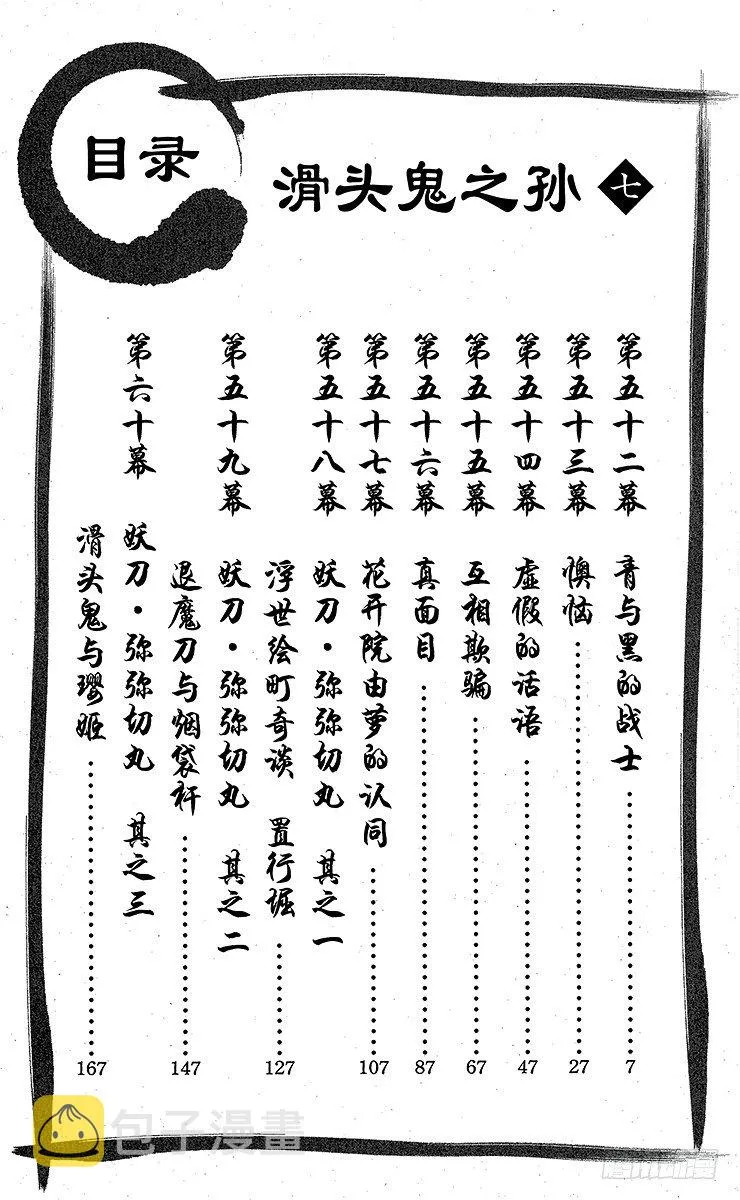 目录
滑头鬼之孙 七
第五十二幕 青与黑的战士 7
第五十三幕 懊恼 27
第五十四幕 虚假的话语 47
第五十五幕 互相欺骗 67
第五十六幕 真面目 87
第五十七幕 花开院由萝的认同 107
第五十八幕 妖刀·弥弥切丸 其之一
浮世绘町奇谈 置行堀 127
第五十九幕 妖刀·弥弥切丸 其之二
退魔刀与烟袋杆 147
第六十幕 妖刀·弥弥切丸 其之三
滑头鬼与璎姬 167
包子漫畫